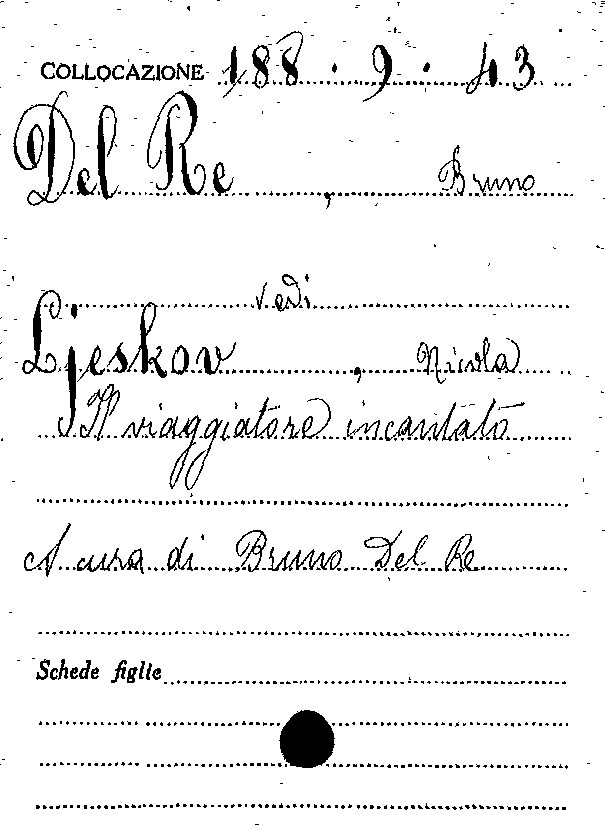 COLLOCAZIONE 188 · 9 · 43
Del Re, Bruno
vedi
Ljeskov, Nicola
Il viaggiatore incantato
A cura di Bruno Del Re
Schede figlie